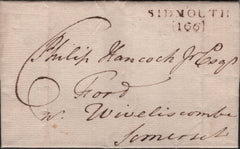 SIDMOUTH
166
6
Philip Hancock Jr Esqr
Ford
nr. Wiveliscombe
Somerset